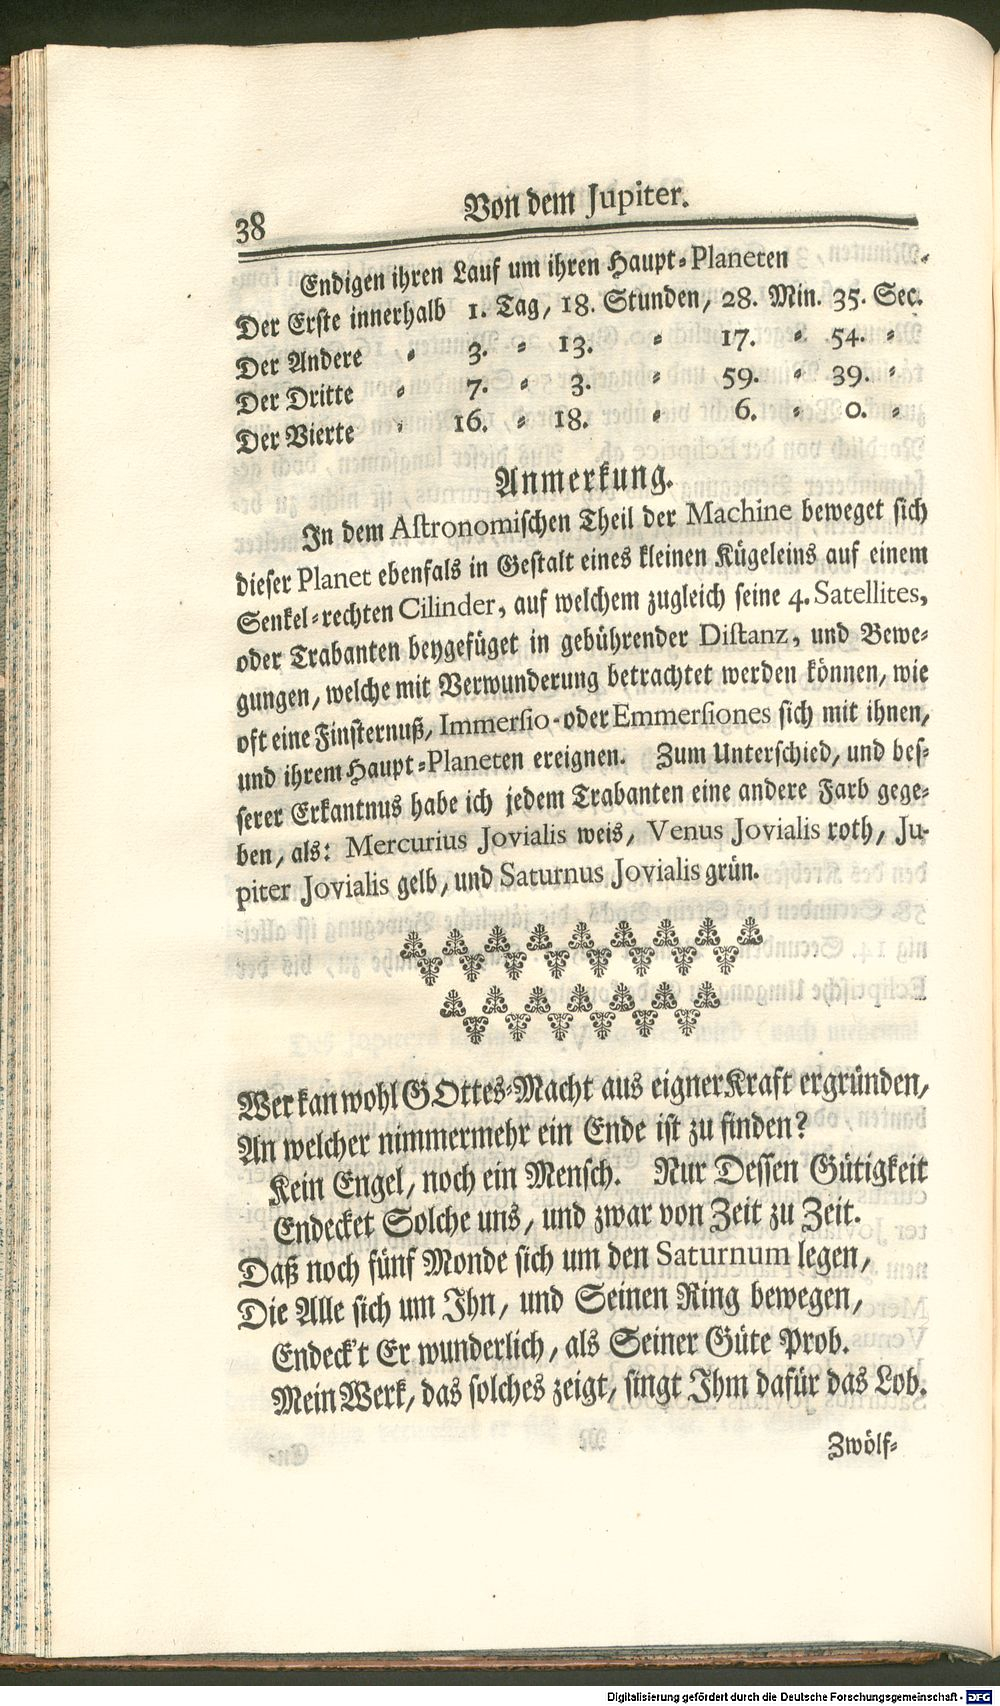 38
Von dem Jupiter.
Endigen ihren Lauf um ihren Haupt-Planeten
Der Erste innerhalb 1. Tag, 18. Stunden, 28. Min. 35. Sec.
Der Andere - 3. - 13. - 17. - 54. -
Der Dritte - 7. - 3. - 59. - 39. -
Der Vierte - 16. - 18. - 6. - 0. -
Anmerkung.
In dem Astronomischen Theil der Machine beweget sich
dieser Planet ebenfals in Gestalt eines kleinen Kügeleins auf einem
Senkel-rechten Cilinder, auf welchem zugleich seine 4. Satellites,
oder Trabanten beygefüget in gebührender Distanz, und Bewe-
gungen, welche mit Verwunderung betrachtet werden können, wie
oft eine Finsternuß, Immersio- oder Emmersiones sich mit ihnen,
und ihrem Haupt-Planeten ereignen. Zum Unterschied, und bes-
serer Erkantnus habe ich jedem Trabanten eine andere Farb gege-
ben, als: Mercurius Jovialis weis, Venus Jovialis roth, Ju-
piter Jovialis gelb, und Saturnus Jovialis grün.
Wer kan wohl GOttes-Macht aus eigner Kraft ergründen,
An welcher nimmermehr ein Ende ist zu finden?
Kein Engel, noch ein Mensch. Nur Dessen Gütigkeit
Endecket Solche uns, und zwar von Zeit zu Zeit.
Daß noch fünf Monde sich um den Saturnum legen,
Die Alle sich um Ihn, und Seinen Ring bewegen,
Endeck't Er wunderlich, als Seiner Güte Prob.
Mein Werk, das solches zeigt, singt Ihm dafür das Lob.
Zwölf-
Digitalisierung gefördert durch die Deutsche Forschungsgemeinschaft - DFG